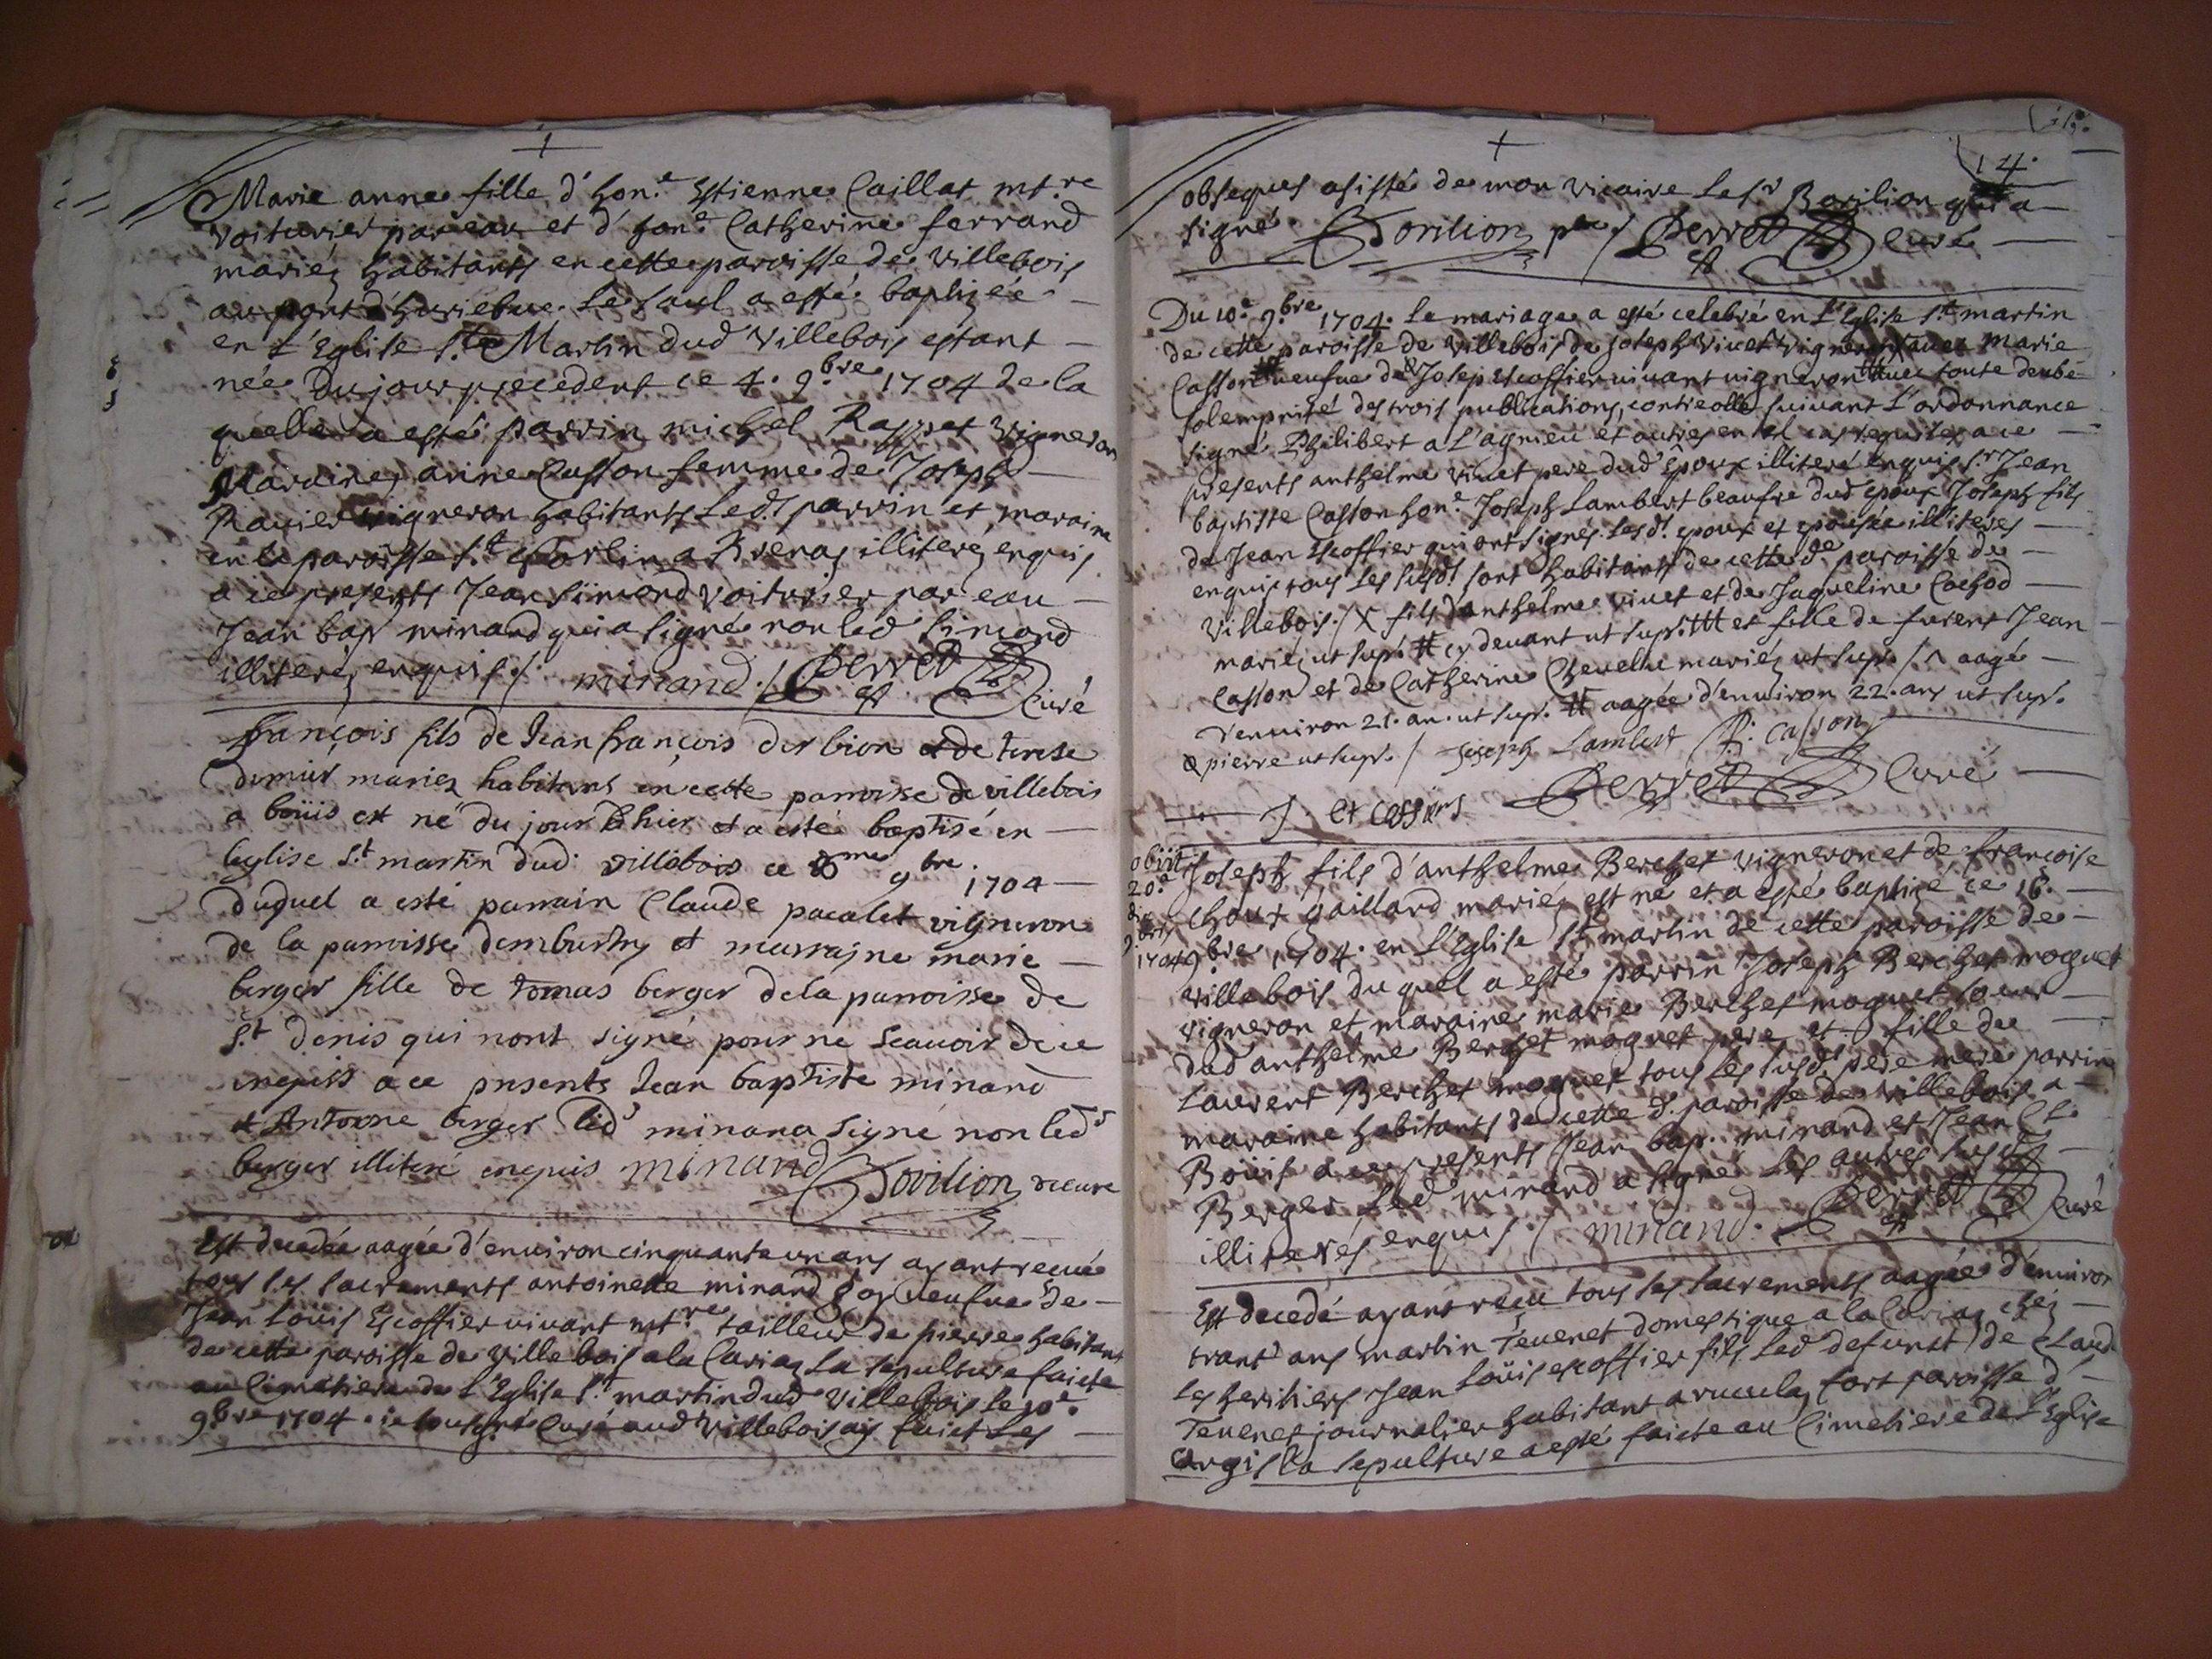 Marie anne fille d'hon.e Estienne Caillat mt.re
voiturier par eau et d'hon.e Catherine ferrand
mariéz habitants en cette paroisse de Villebois
au port le Saul a esté baptizée
en L'Eglise S.t Martin dud Villebois estant
née du jour precedent ce 4. 9.bre 1704 de la
quelle a esté parrin michel Vigneron
Maraine anne Casson femme de Joseph
Ravier vigneron habitants Led.ts parrin et maraine
en la paroisse S.t illiteréz enquis
a ce presents Jean Simond voiturier par eau
Jean bap minand qui a signé non led Simond
illiteréz enquis /. minand. / Perret Curé
françois fils de Jean françois et de terese
mariez habitans en cette parroisse de villebois
a boüis est né du jour hier et a esté baptisé en
leglise S.t martin dud. villebois ce 8me 9bre. 1704
duquel a esté parrain Claude pacalet vigneron
de la parroisse et marrayne marie
berger fille de tomas berger de la parroisse de
S.t denis qui nont signé pour ne scavoir de ce
enquis a ce presents Jean baptiste minand
et Antoine berger led minand a signé non led
berger illiteré enquis minand Borilion vicaire
Est decedée aagée d'environ cinquante un ans ayant receue
tous les sacrements antoinette minand veufve de
Jean Loüis Escoffier vivant mt.re tailleur de pierre habitant
de cette paroisse de Villebois a la Cariaz La sepulture faicte
au Cimetiere de L'Eglise S.t martin dud Villebois le 10.e
9bre 1704. je soubsigné Curé aud Villebois ay faict Les
14.
obseques assisté de mon vicaire Le s.r Borilion qui a
signé. Borilion / Perret Curé
Du 10.e 9.bre 1704. Le mariage a esté celebré en L'Eglise S.t martin
de cette paroisse de Villebois de Joseph Vivet vigneron avec Marie
Casson veufve de Josep Escoffier vivant vigneron avec toute deube
solempnité des trois publications, controlle suivant L'ordonnance
signé Philibert a L'agnieu et autres en tel cas requises a ce
presents anthelme Vivet pere dud Epoux illiteré enquis S.r Jean
baptiste Casson hon.e Joseph Lambert beaufre dud epoux Joseph fils
de Jean Escoffier qui ont signés. Lesd.t epoux et epousée illiteres
enquis tous Les susd.t sont habitants de cette d.e paroisse de
Villebois. / X fils d'anthelme Vivet et de Jaqueline Cachod
mariéz ut sup. # cy devant ut sup. ### et fille de furent Jean
Casson et de Catherine mariéz ut sup. / ^ aagé
d'environ 21. an. ut sup. # aagée d'environ 22. ans ut sup.
pierre ut sup. / Joseph Lambert casson
Perret Curé
obiit
20.e
1704
Joseph fils d'anthelme Berchet vigneron et de francoise
choux gaillard mariéz est né et a esté baptizé ce 16.e
9bre 1704. en L'Eglise S.t martin de cette paroisse de
Villebois du quel a esté parrin Joseph Berchet moquet
vigneron et maraine marie Berchet moquet soeur
dud anthelme Berchet moquet pere et fille de
Laurent Berchet moquet tous Les susd.t pere mere parrin
maraine habitants de cette d. paroisse de Villebois a
Boüis a ce presents Jean bap. minand et Jean
Berger Led minand a signé Les autres susd.t
illiterés enquis / minand. Perret Curé
Est decedé ayant reçeu tous les sacrements aagée d'environ
trant ans martin Tévenet domestique a la Cariaz chéz
Les heritiers Jean Loüis escoffier fils Led defunst de Claude
Tevenet journalier habitant a paroisse d'
Argis La sepulture a esté faicte au Cimetiere de L'Eglise